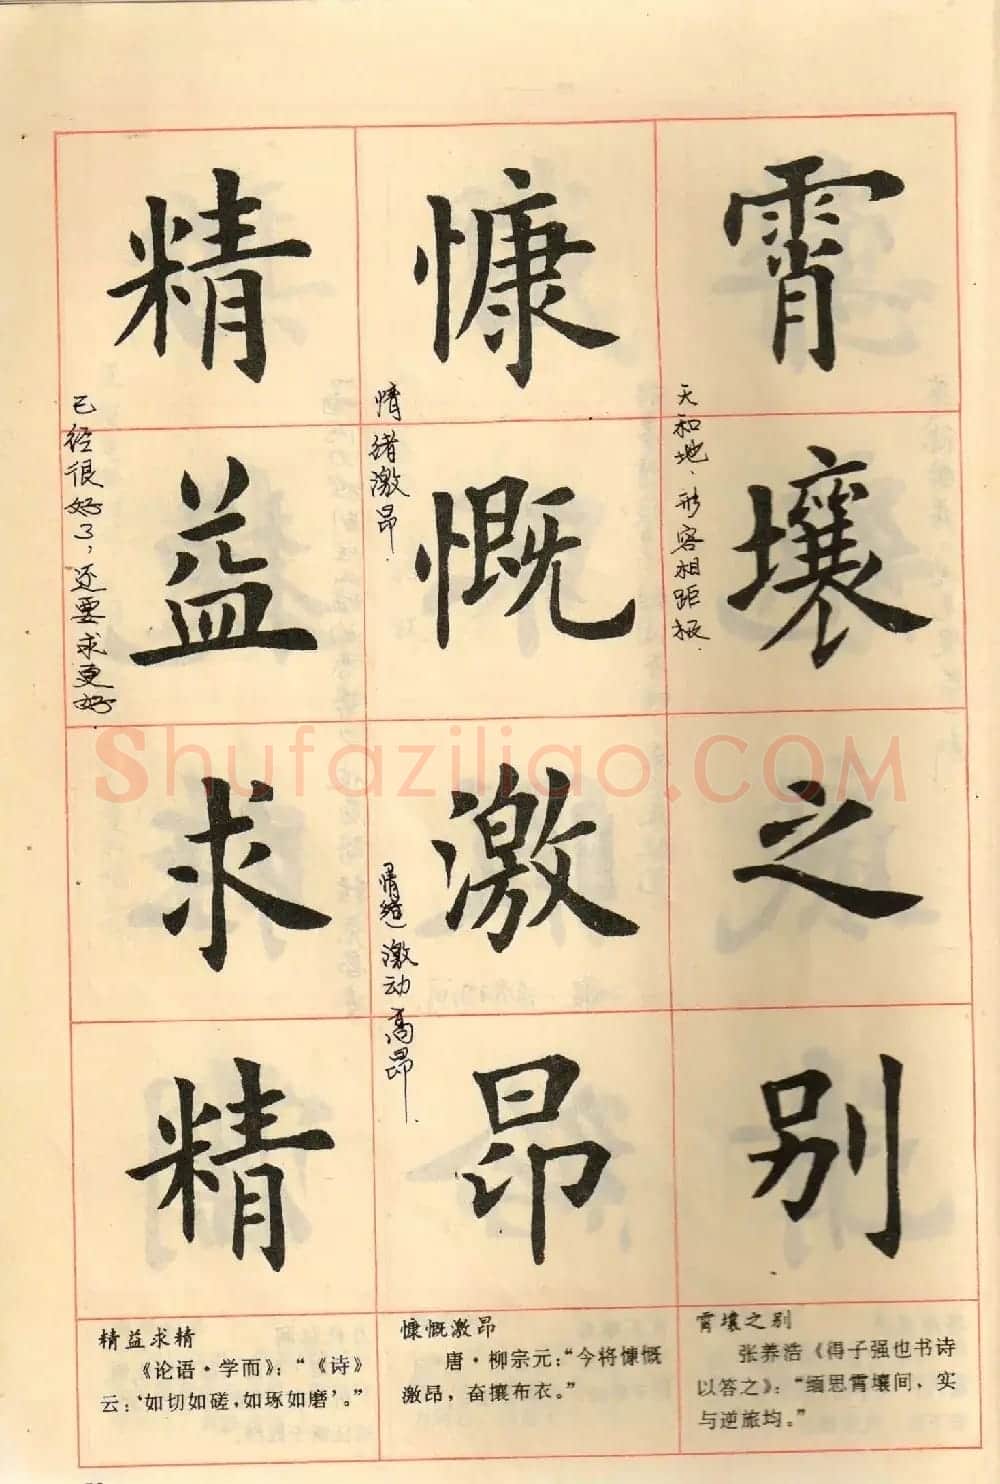 霄壤之别
天和地.形容相距极.
慷慨激昂
情绪激昂.
(情绪)激动高昂.
精益求精
已经很好了,还要求更好.
Shufaziliao.COM
精益求精
《论语·学而》:“《诗》
云:‘如切如磋,如琢如磨’。”
慷慨激昂
唐·柳宗元:“今将慷慨
激昂,奋攘布衣。”
霄壤之别
张养浩《得子强也书诗
以答之》:“缅思霄壤间,实
与逆旅均。”